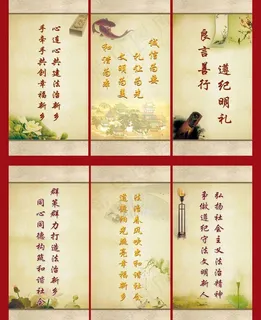 心连心共建法治新乡
手牵手共创幸福新乡
诚信为要
礼让为先
文明为
和谐为
遵纪明礼
良言善行
群策群力打造法治新乡
同心同德构筑和谐社会
法治春风映出和谐社会
道德阳光照亮幸福新乡
弘扬社会主义法治精神
争做遵纪守法文明新人